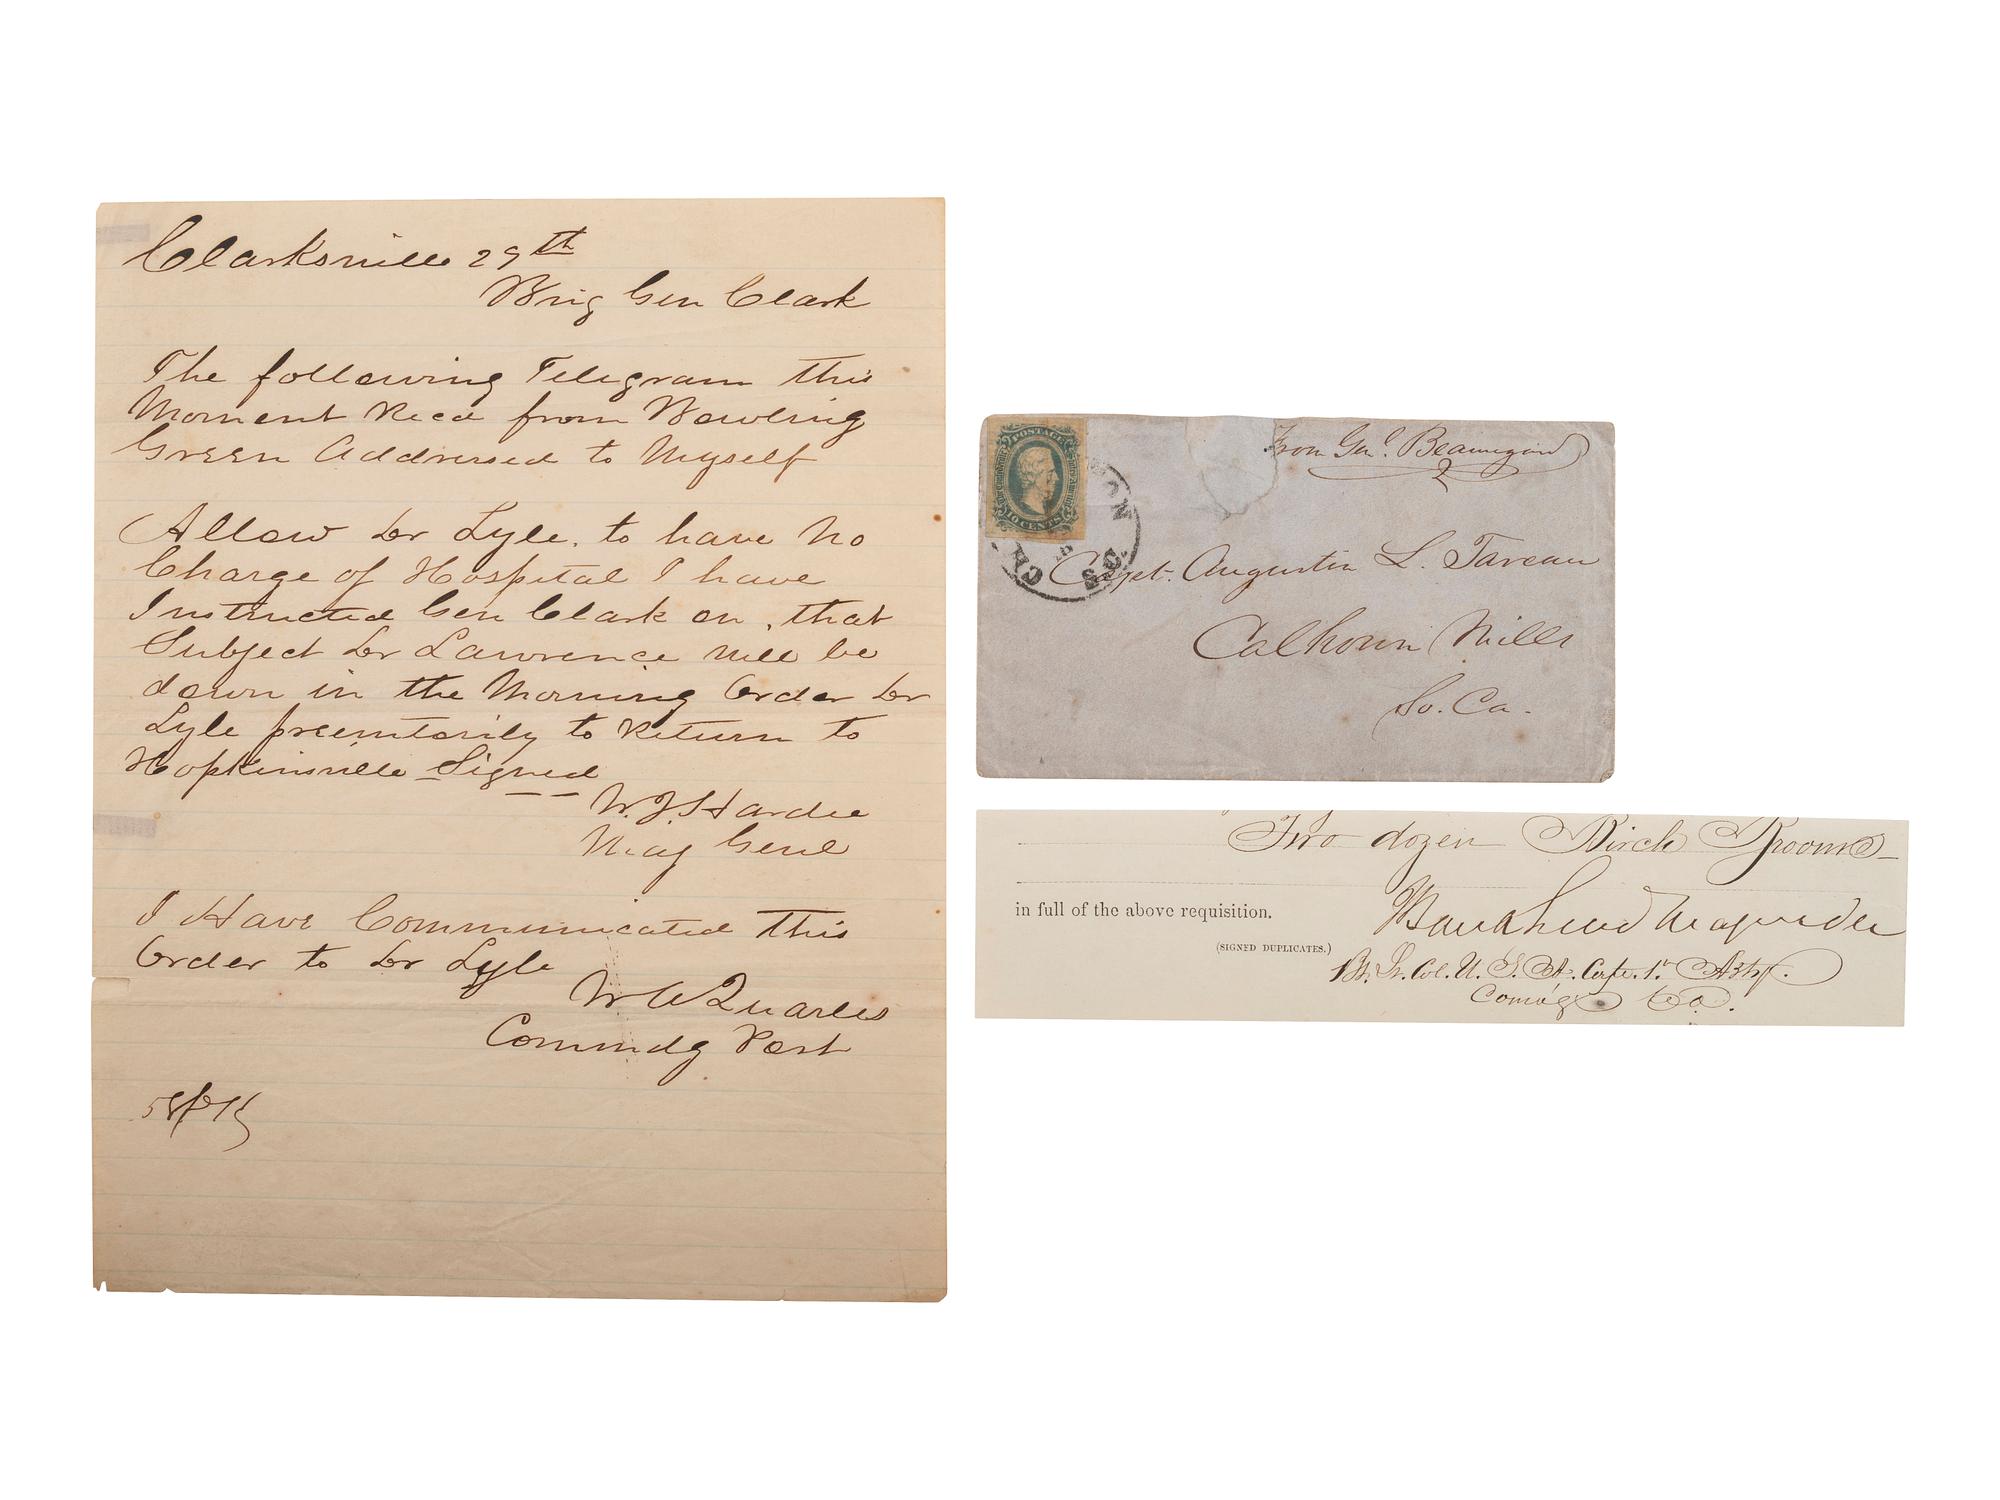 Clarksville 29th
Brig Gen Clark
The following Telegram this
Moment Recd from Bowling
Green Addressed to Myself
Allow Dr Lyle. to have No
Charge of Hospital I have
Instructed Gen Clark on, that
Subject Dr Lawrence will be
down in the Morning Order Dr
Lyle preemtorily to Return to
Hopkinsville Signed
W.J. Hardee
Maj Genl
I Have Communicated this
Order to Dr Lyle
W A Quarles
Commdg Post
From Genl. Beauregard
POSTAGE
The Confederate States of America
10 CENTS
CH ON
S.C.
Capt. Augustin L. Taveau
Calhoun Mills
So. Ca.
Two dozen Birch Brooms
in full of the above requisition.
Bankhead Magruder
(SIGNED DUPLICATES.)
Bt. Lt. Col. U. S. A. Capt. 1st Arty.
Comdg Co.